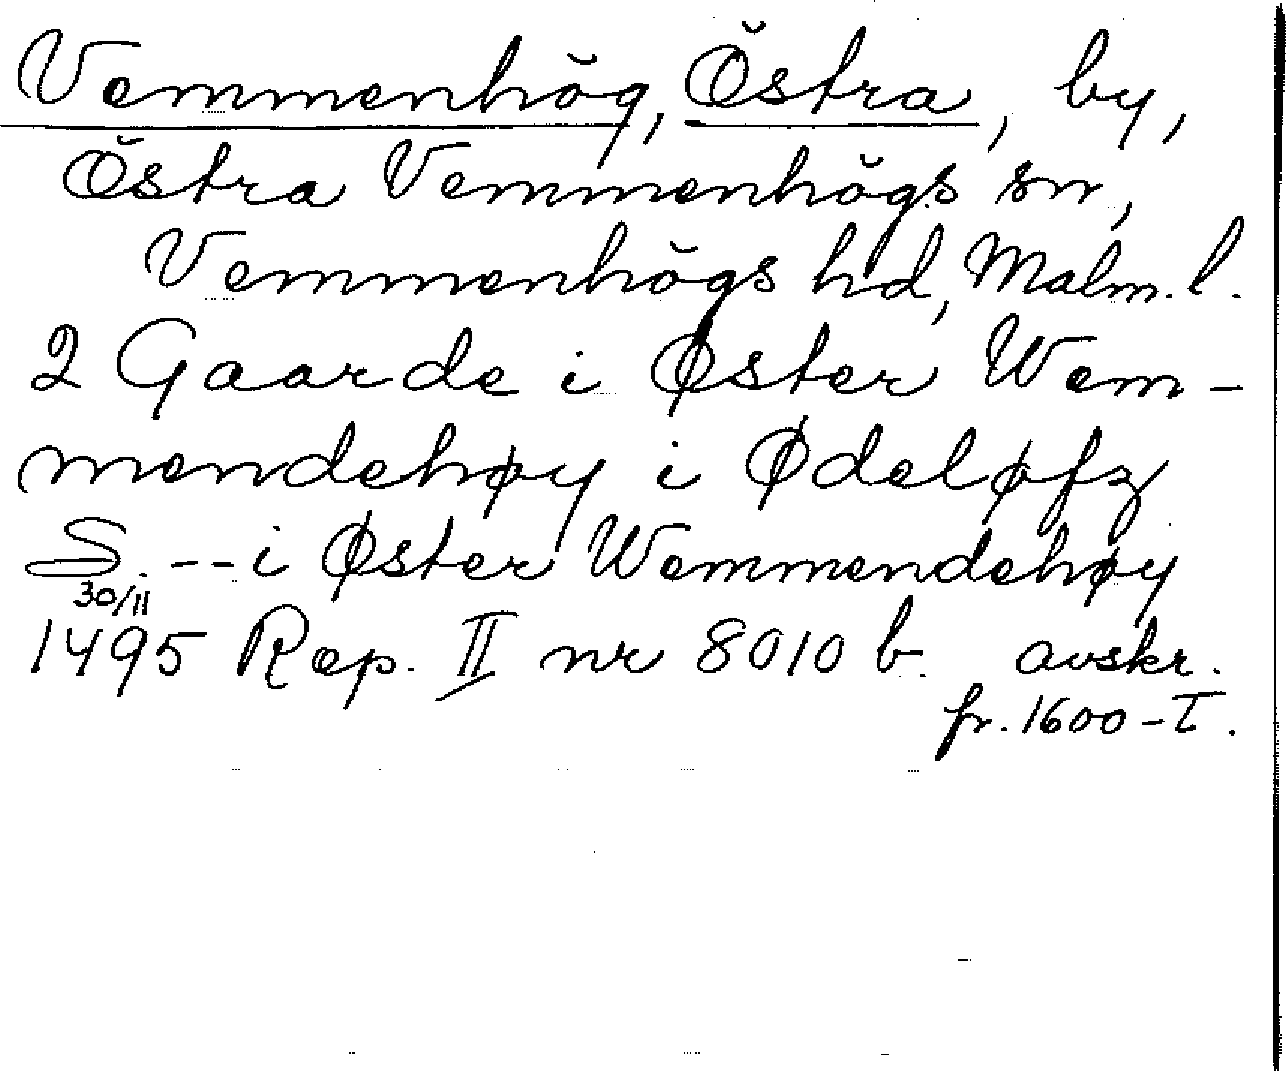 Vemmenhög, Östra, by,
Östra Vemmenhögs sn,
Vemmenhögs hd, Malm. l.
2 Gaarde i Øster Wem-
mendehøy i Ødeløfz
S. -- i Øster Wemmendehøy
30/11
1495 Rep. II nr 8010 b. avskr.
fr. 1600-T.